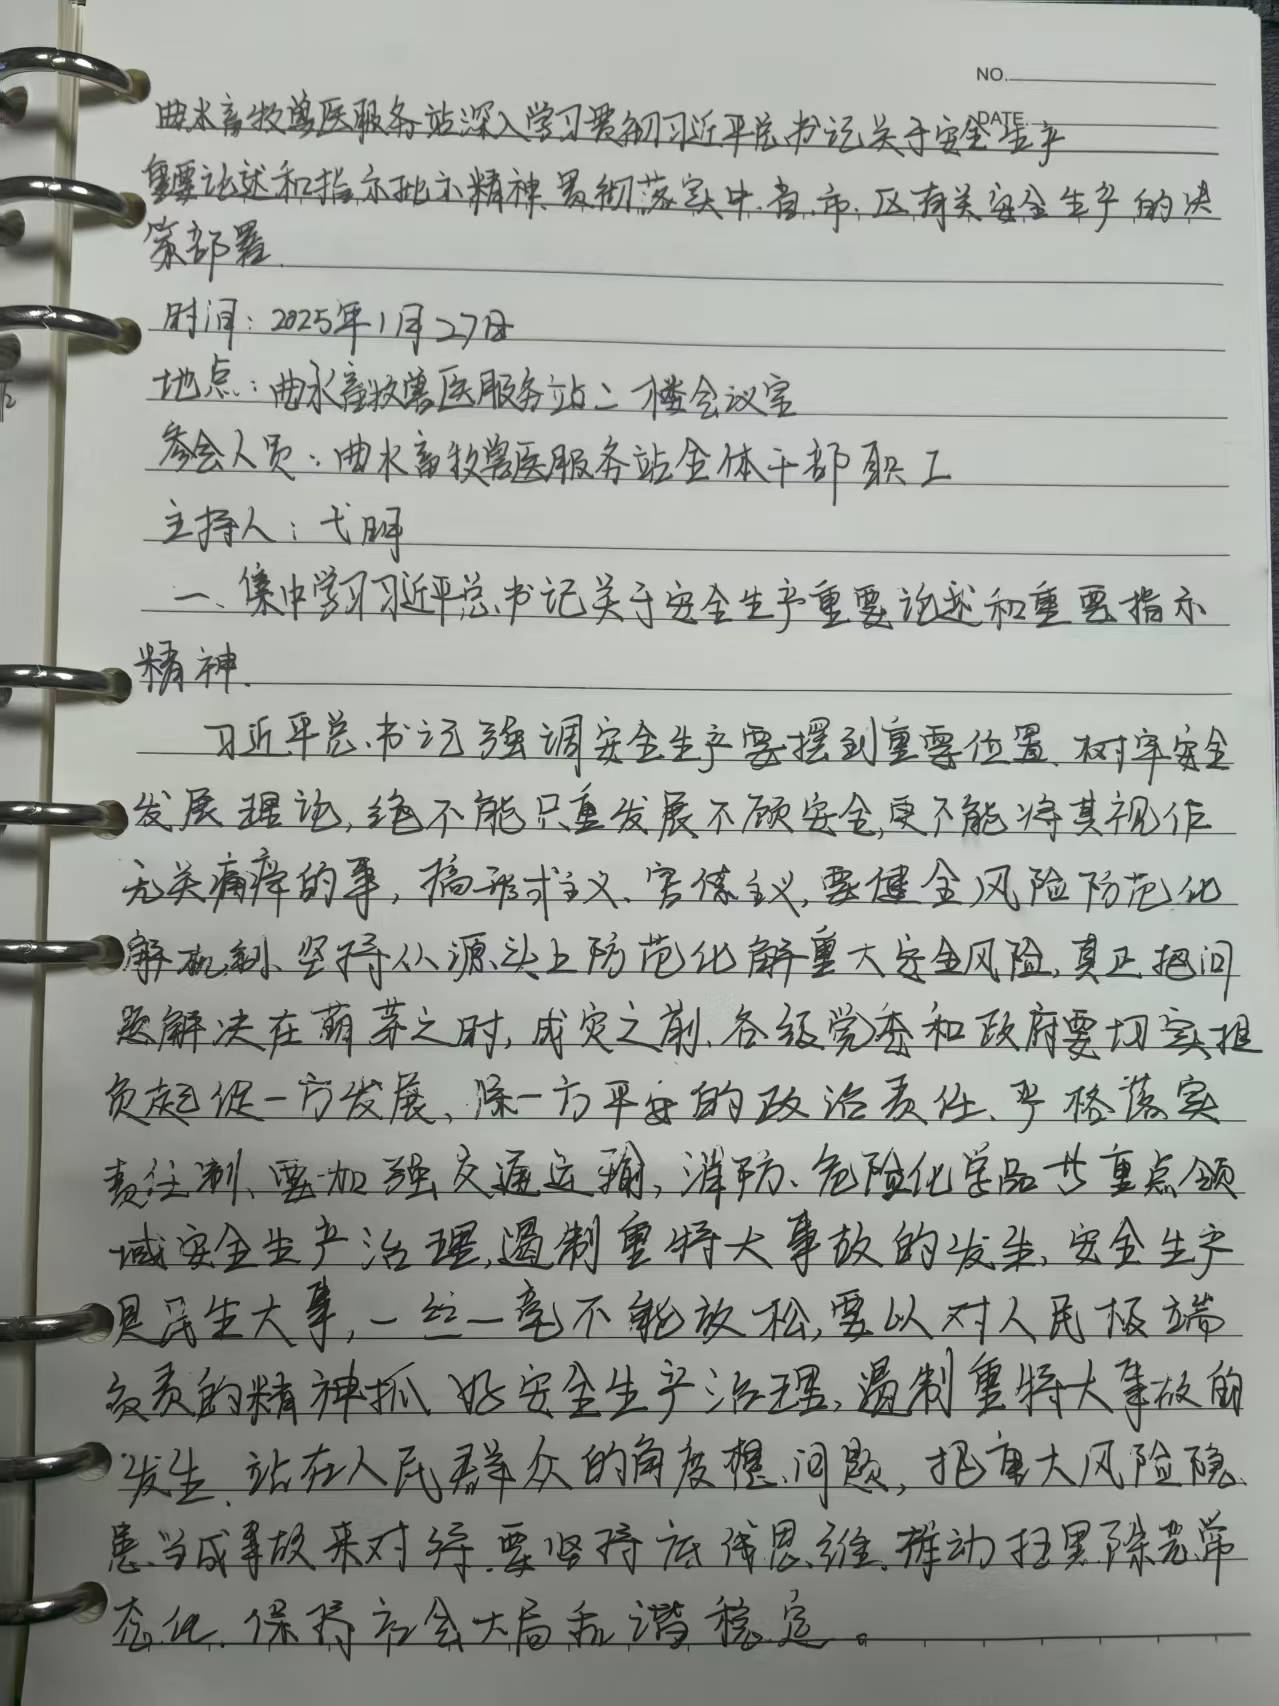 NO.
DATE.
曲水畜牧兽医服务站深入学习贯彻习近平总书记关于安全生产
重要论述和指示批示精神、贯彻落实中.省.市.区有关安全生产的决
策部署.
时间：2025年1月27日
地点：曲水畜牧兽医服务站二楼会议室
参会人员：曲水畜牧兽医服务站全体干部职工
主持人：弋明
一、集中学习习近平总书记关于安全生产重要论述和重要指示
精神.
习近平总书记强调安全生产要摆到重要位置.树牢安全
发展理论,绝不能只重发展不顾安全,更不能将其视作
无关痛痒的事,搞形式主义、官僚主义,要健全风险防范化
解机制、坚持从源头上防范化解重大安全风险,真正把问
题解决在萌芽之时,成灾之前.各级党委和政府要切实担
负起促一方发展、保一方平安的政治责任、严格落实
责任制、要加强交通运输,消防、危险化学品等重点领
域安全生产治理,遏制重特大事故的发生.安全生产
是民生大事,一丝一毫不能放松,要以对人民极端
负责的精神抓好安全生产治理,遏制重特大事故的
发生.站在人民群众的角度想问题,把重大风险隐
患当成事故来对待.要坚持底线思维.推动扫黑除恶常
态化.保持社会大局和谐稳定。